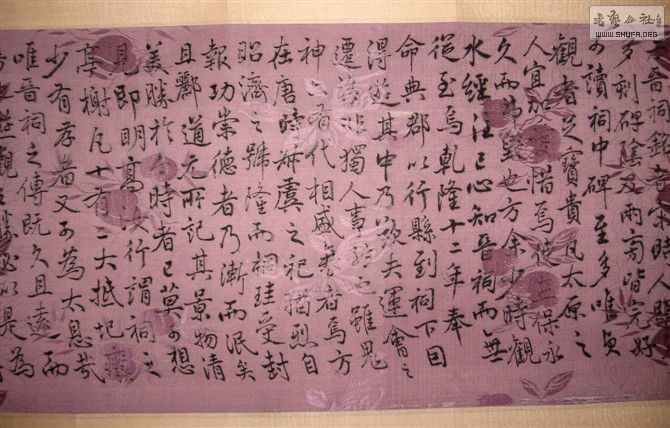 書藝公社
WWW.SHUFA.ORG
多刻碑陰及兩旁皆完好
可讀祠中碑至多唯貞
觀者芝寶貴凡太原之
人宜加惜焉使保永
久而為也方余少時觀
水經注已心知晉祠而無
從至焉乾隆十二年奉
命典郡以行縣到祠下因
得遊其中乃歎夫運會之
遷非獨人事雖鬼
神有代相盛衰者焉方
在唐時叔虞之祀猶烈自
昭濟之號隆而桐珪受封
報功崇德者乃漸而泯矣
且酈道元所記其景物清
美勝於今時者已莫可想
見即明高行謂祠之
亭榭凡十有二大抵圮
少有存者又可為太息哉
唯晉祠之傳既久且遠而
遊觀之勝是為